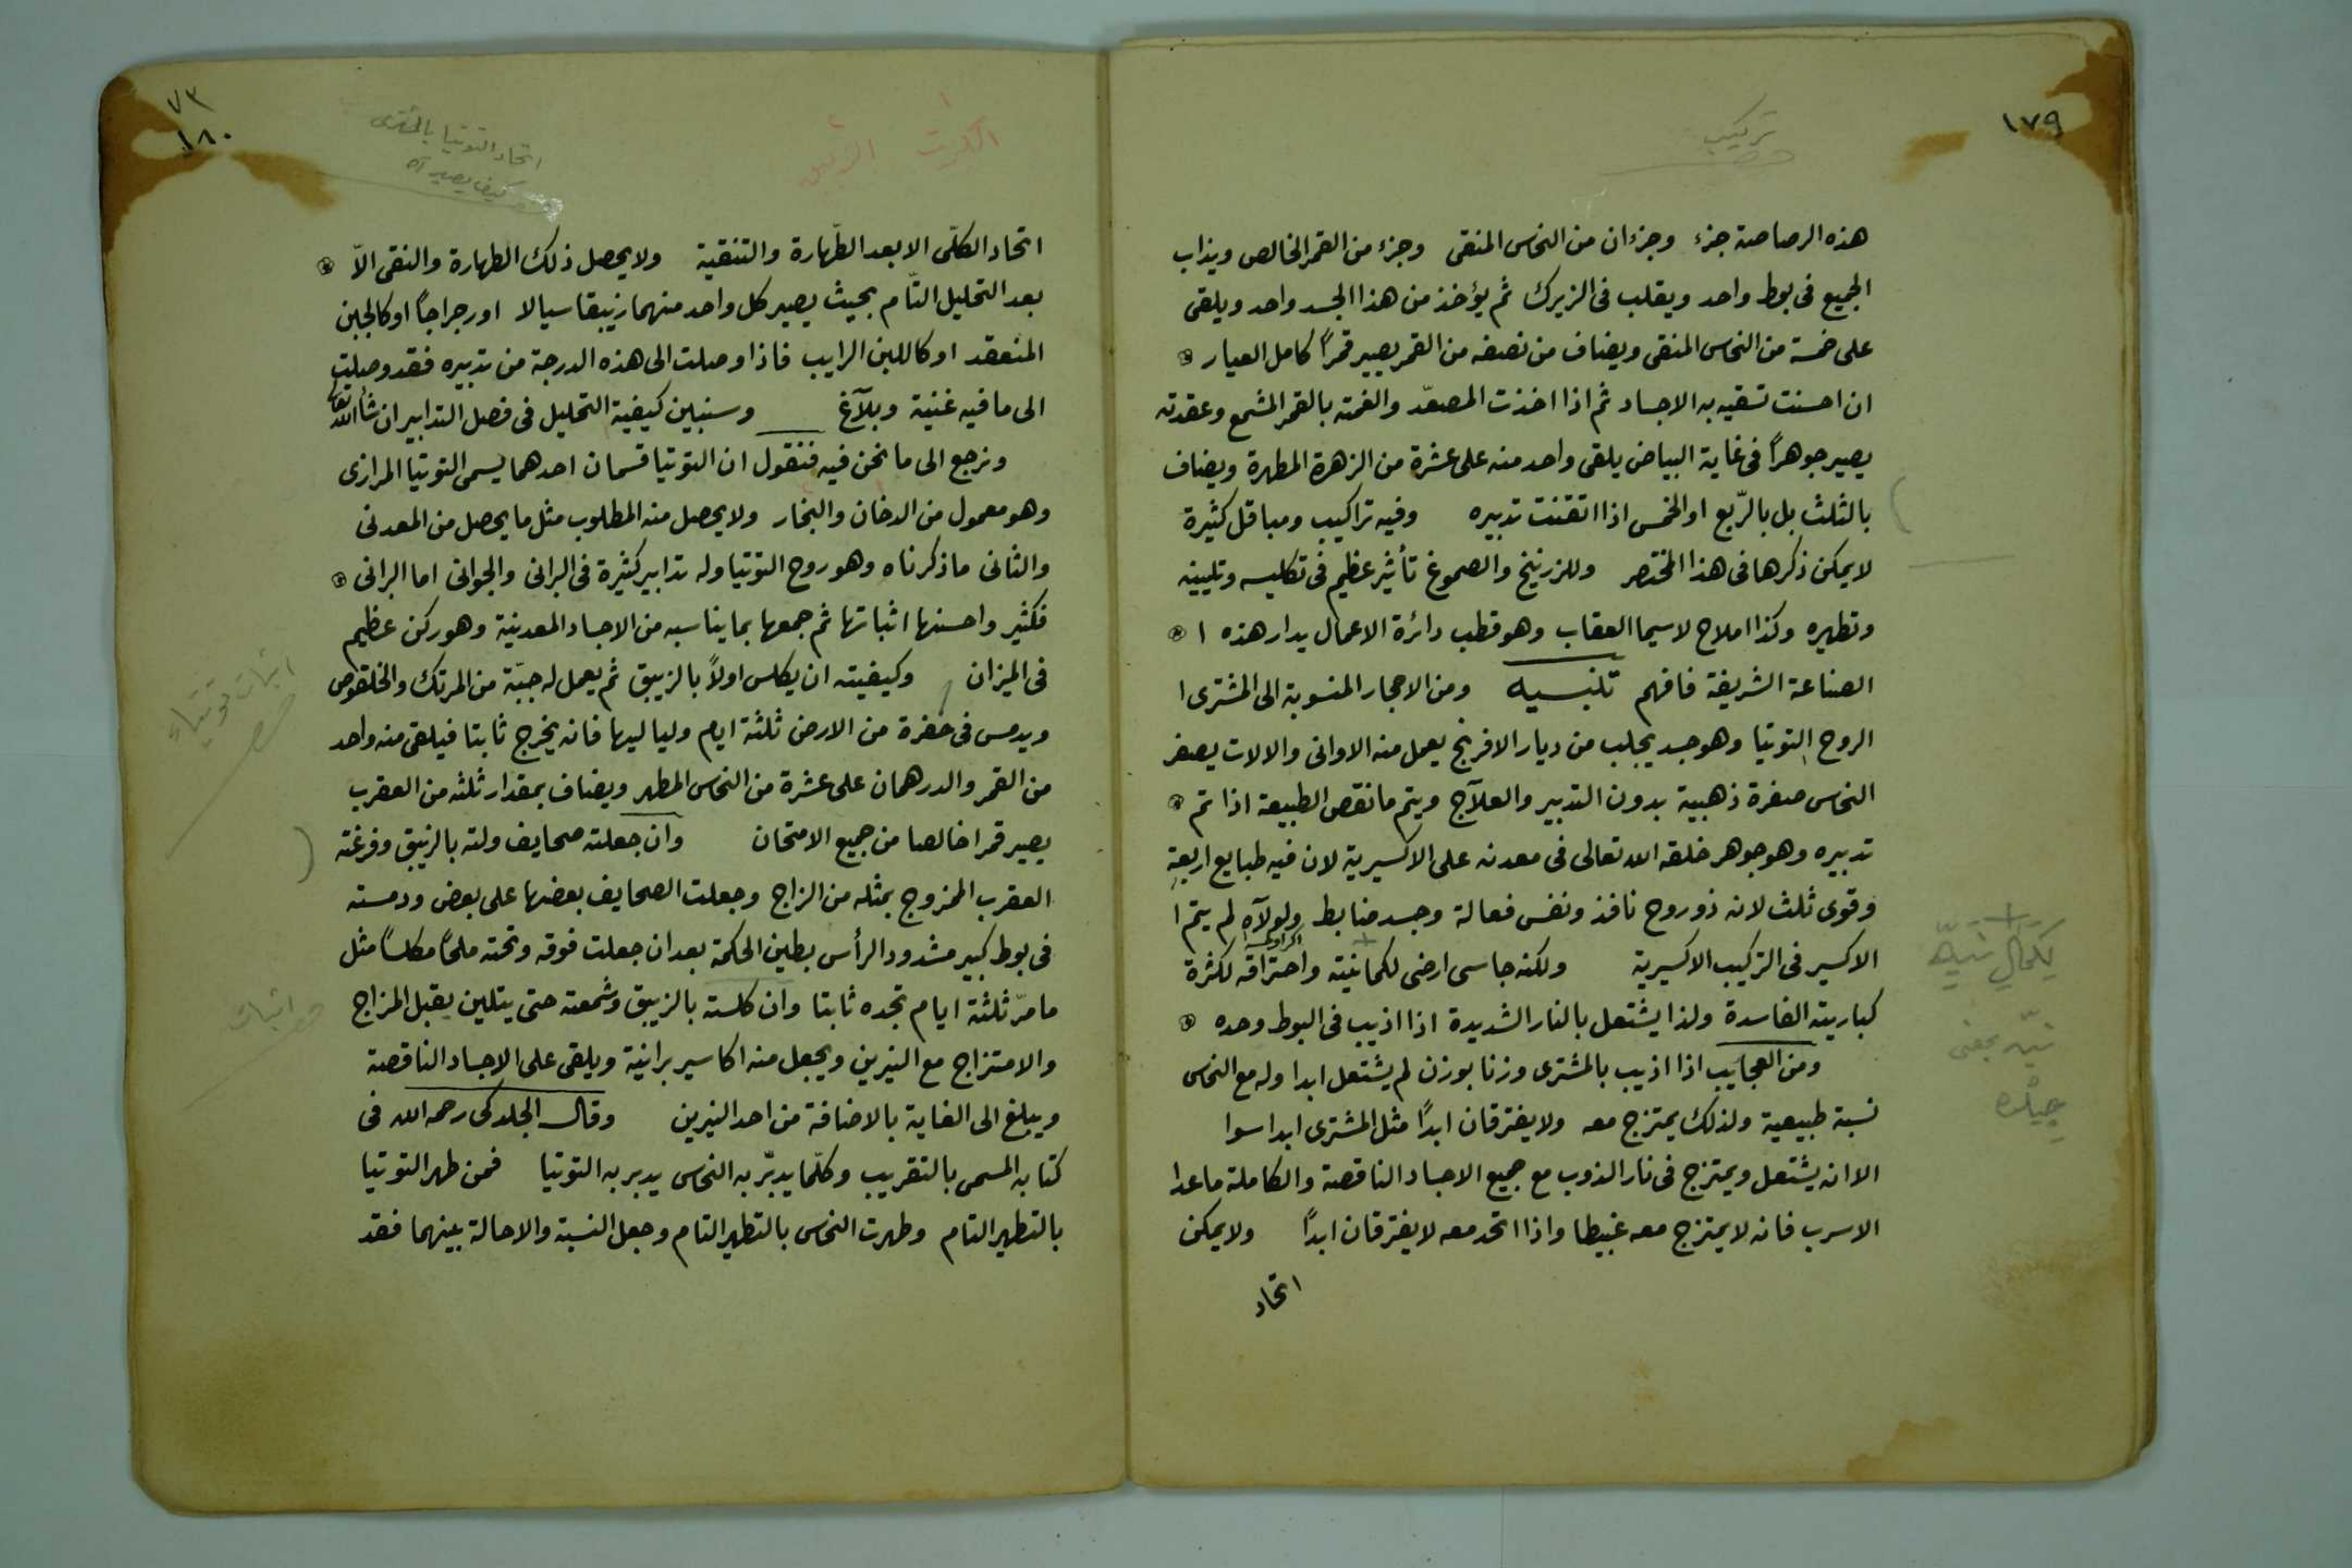 ١٧٩
تركيب
هذه الرصاصة جزء وجزءان من النحاس المنقى وجزء من القمر الخالص ويذاب
الجميع فى بوط واحد ويقلب فى الزيرك ثم يؤخذ من هذا الجسد واحد ويلقى
على خمسة من النحاس المنقى ويضاف من نصفه من القمر يصير قمراً كامل العيار
ان احسنت تسقيه به الاجساد ثم اذا اخذت المصعّد والغمته بالقمر المشمع وعقدته
يصير جوهراً فى غاية البياض يلقى واحد منه على عشرة من الزهرة المطهرة ويضاف
بالثلث بل بالرّبع او الخمس اذا اتقنت تدبيره وفيه تراكيب ومباقل كثيرة
لا يمكن ذكرها فى هذا المختصر وللزرنيخ والصموغ تأثير عظيم فى تكليسه وتليينه
وتطهيره وكذا املاح لاسيما العقاب وهو قطب دائرة الاعمال يدار هذه ا
الصناعة الشريفة فافهم تلنبسيه ومن الاحجار المنسوبة الى المشترى ا
الروح التوتيا وهو جسد يجلب من ديار الافرنج يعمل منه الاوانى والالات يصفر
النحاس صفرة ذهبية بدون التدبير والعلآج ويتم ما نقص الطبيعة اذا تم
تدبيره وهو جوهر خلقه الله تعالى فى معدنه على الاكسيرية لان فيه طبايع اربعة
وقوى ثلث لانه ذو روح نافذ ونفس فعالة وجسد ضابط ولولآه لم يتم ا
الاكسير فى التركيب الاكسيرية ولكنه جاسى ارضى لكمانيته واحتراقه لكثرة
كباريته الفاسدة ولذا يشتعل بالنار الشديدة اذا اذيب فى البوط وحده
ومن العجايب اذا اذيب بالمشترى وزنا بوزن لم يشتعل ابدا وله مع النحاس
نسبة طبيعية ولذلك يمتزج معه ولا يفترقان ابداً مثل المشترى ابدا سوا
الا انه يشتعل ويمتزج فى نار الذوب مع جميع الاجساد الناقصة والكاملة ماعدا
الاسرب فانه لا يمتزج معه غبيطا واذا اتحد معه لا يفترقان ابداً ولا يمكن
اتحاد
٧٣
١٨٠
اتحاد التوتيا بالمشترى
كيف يصير
اتحاد الكلّى الا بعد الطّهارة والتنقية ولا يحصل ذلك الطهارة والنقى الاّ
بعد التحليل التّام بحيث يصير كل واحد منهما زيبقا سيالا او رجراجاً او كالجبن
المنعقد او كاللبن الرايب فاذا وصلت الى هذه الدرجة من تدبيره فقد وصلت
الى ما فيه غنية وبلآغ وسنبين كيفية التحليل فى فصل التدابير ان شاالله تعا
ونرجع الى ما نحن فيه فنقول ان التوتيا قسمان احدهما يسمى التوتيا المرازى
وهو معمول من الدخان والبخار ولا يحصل منه المطلوب مثل ما يحصل من المعدنى
والثانى ما ذكرناه وهو روح التوتيا وله تدابير كثيرة فى البرانى والجوانى اما البرانى
فكثير واحسنها اثباتها ثم جمعها بما يناسبه من الاجساد المعدنية وهو ركن عظيم
فى الميزان وكيفيته ان يكلس اولاً بالزيبق ثم يعمل له جبّة من المرتك والخلقوص
ويدمس فى حفرة من الارض ثلثة ايام ولياليها فانه يخرج ثابتا فيلقى منه واحد
من القمر والدرهمان على عشرة من النحاس المطهر ويضاف بمقدار ثلثه من العقرب
يصير قمرا خالصا من جميع الامتحان وان جعلته صحايف ولته بالزيبق وفرغته
العقرب الممزوج بمثله من الزاج وجعلت الصحايف بعضها على بعض ودمسته
فى بوط كبير مشدود الرأس بطين الحكمة بعد ان جعلت فوقه وتحته ملحاً مكلساً مثل
ما مرّ ثلثة ايام تجده ثابتا وان كلسته بالزيبق وشمعته حتى يتلين يقبل المزاج
والامتزاج مع النيرين ويجعل منه اكاسير برانية ويلقى على الاجساد الناقصة
ويبلغ الى الغاية بالاضافة من احد النيرين وقال الجلدكى رحمه الله فى
كتابه المسمى بالتقريب وكلّما يدبّر به النحاس يدبر به التوتيا فمن طهر التوتيا
بالتطهير التام وطهرت النحاس بالتطهير التام وجعل النسبة والاحالة بينهما فقد
اثبات توتياء